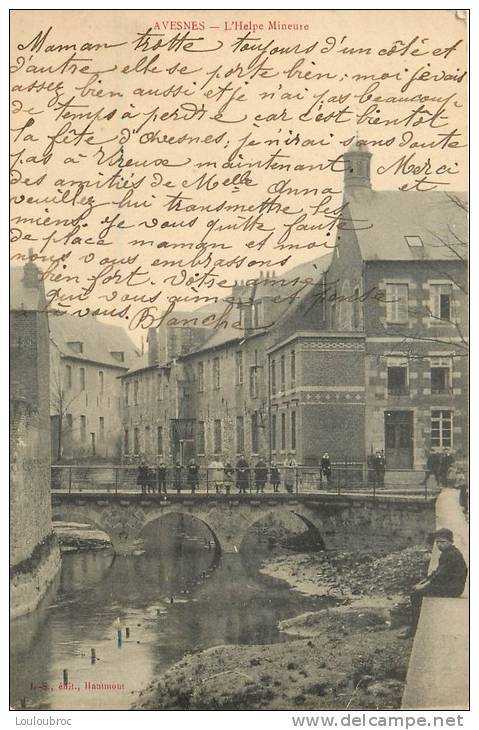 AVESNES — L'Helpe Mineure
Maman trotte toujours d'un côté et
d'autre elle se porte bien ; moi je vais
assez bien aussi et je n'ai pas beaucoup
de temps à perdre car c'est bientôt
la fête d'Avesnes ; je n'irai sans doute
pas à Vireux maintenant Merci
des amitiés de Melle Anna et
veuillez lui transmettre les
miens. Je vous quitte faute
de place maman et moi
nous vous embrassons
bien fort. Votre amie
qui vous aime et pense
à vous. Blanche
J.-S., édit., Hautmont
Louloubroc